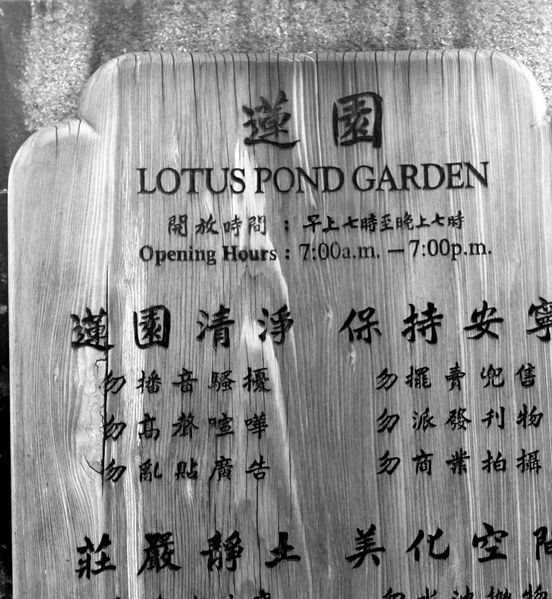 蓮園
LOTUS POND GARDEN
開放時間：早上七時至晚上七時
Opening Hours : 7:00a.m. — 7:00p.m.
蓮園清淨 保持安寧
勿播音騷擾 勿擺賣兜售
勿高聲喧嘩 勿派發刊物
勿亂貼廣告 勿商業拍攝
莊嚴靜土 美化空間